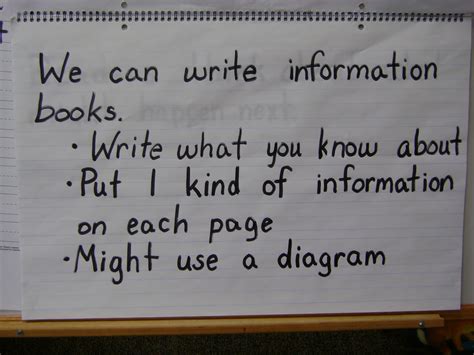 We can write information
books.
• Write what you know about
• Put 1 kind of information
on each page
• Might use a diagram